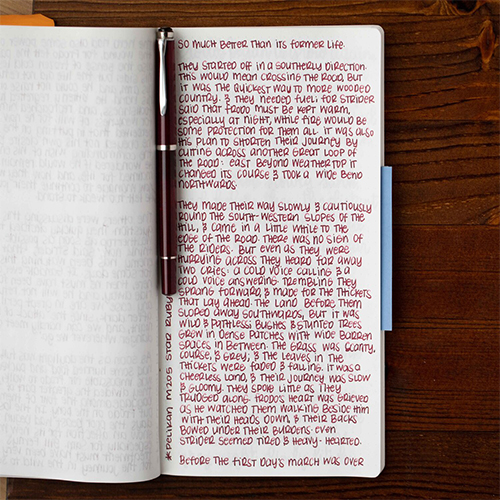 SO MUCH BETTER THAN ITS FORMER LIFE.
THEY STARTED OFF IN A SOUTHERLY DIRECTION.
THIS WOULD MEAN CROSSING THE ROAD, BUT
IT WAS THE QUICKEST WAY TO MORE WOODED
COUNTRY. & THEY NEEDED FUEL; FOR STRIDER
SAID THAT FRODO MUST BE KEPT WARM,
ESPECIALLY AT NIGHT, WHILE FIRE WOULD BE
SOME PROTECTION FOR THEM ALL. IT WAS ALSO
HIS PLAN TO SHORTEN THEIR JOURNEY BY
CUTTING ACROSS ANOTHER GREAT LOOP OF
THE ROAD: EAST BEYOND WEATHERTOP IT
CHANGED ITS COURSE & TOOK A WIDE BEND
NORTHWARDS.
THEY MADE THEIR WAY SLOWLY & CAUTIOUSLY
ROUND THE SOUTH-WESTERN SLOPES OF THE
HILL, & CAME IN A LITTLE WHILE TO THE
EDGE OF THE ROAD. THERE WAS NO SIGN OF
THE RIDERS. BUT EVEN AS THEY WERE
HURRYING ACROSS THEY HEARD FAR AWAY
TWO CRIES: A COLD VOICE CALLING & A
COLD VOICE ANSWERING. TREMBLING THEY
SPRANG FORWARD, & MADE FOR THE THICKETS
THAT LAY AHEAD. THE LAND BEFORE THEM
SLOPED AWAY SOUTHWARDS, BUT IT WAS
WILD & PATHLESS; BUSHES & STUNTED TREES
GREW IN DENSE PATCHES WITH WIDE BARREN
SPACES IN BETWEEN. THE GRASS WAS SCANTY,
COURSE, & GREY; & THE LEAVES IN THE
THICKETS WERE FADED & FALLING. IT WAS A
CHEERLESS LAND, & THEIR JOURNEY WAS SLOW
& GLOOMY. THEY SPOKE LITTLE AS THEY
TRUDGED ALONG. FRODO'S HEART WAS GRIEVED
AS HE WATCHED THEM WALKING BESIDE HIM
WITH THEIR HEADS DOWN, & THEIR BACKS
BOWED UNDER THEIR BURDENS. EVEN
STRIDER SEEMED TIRED & HEAVY-HEARTED.
BEFORE THE FIRST DAY'S MARCH WAS OVER
*PELIKAN M205 STAR RUBY